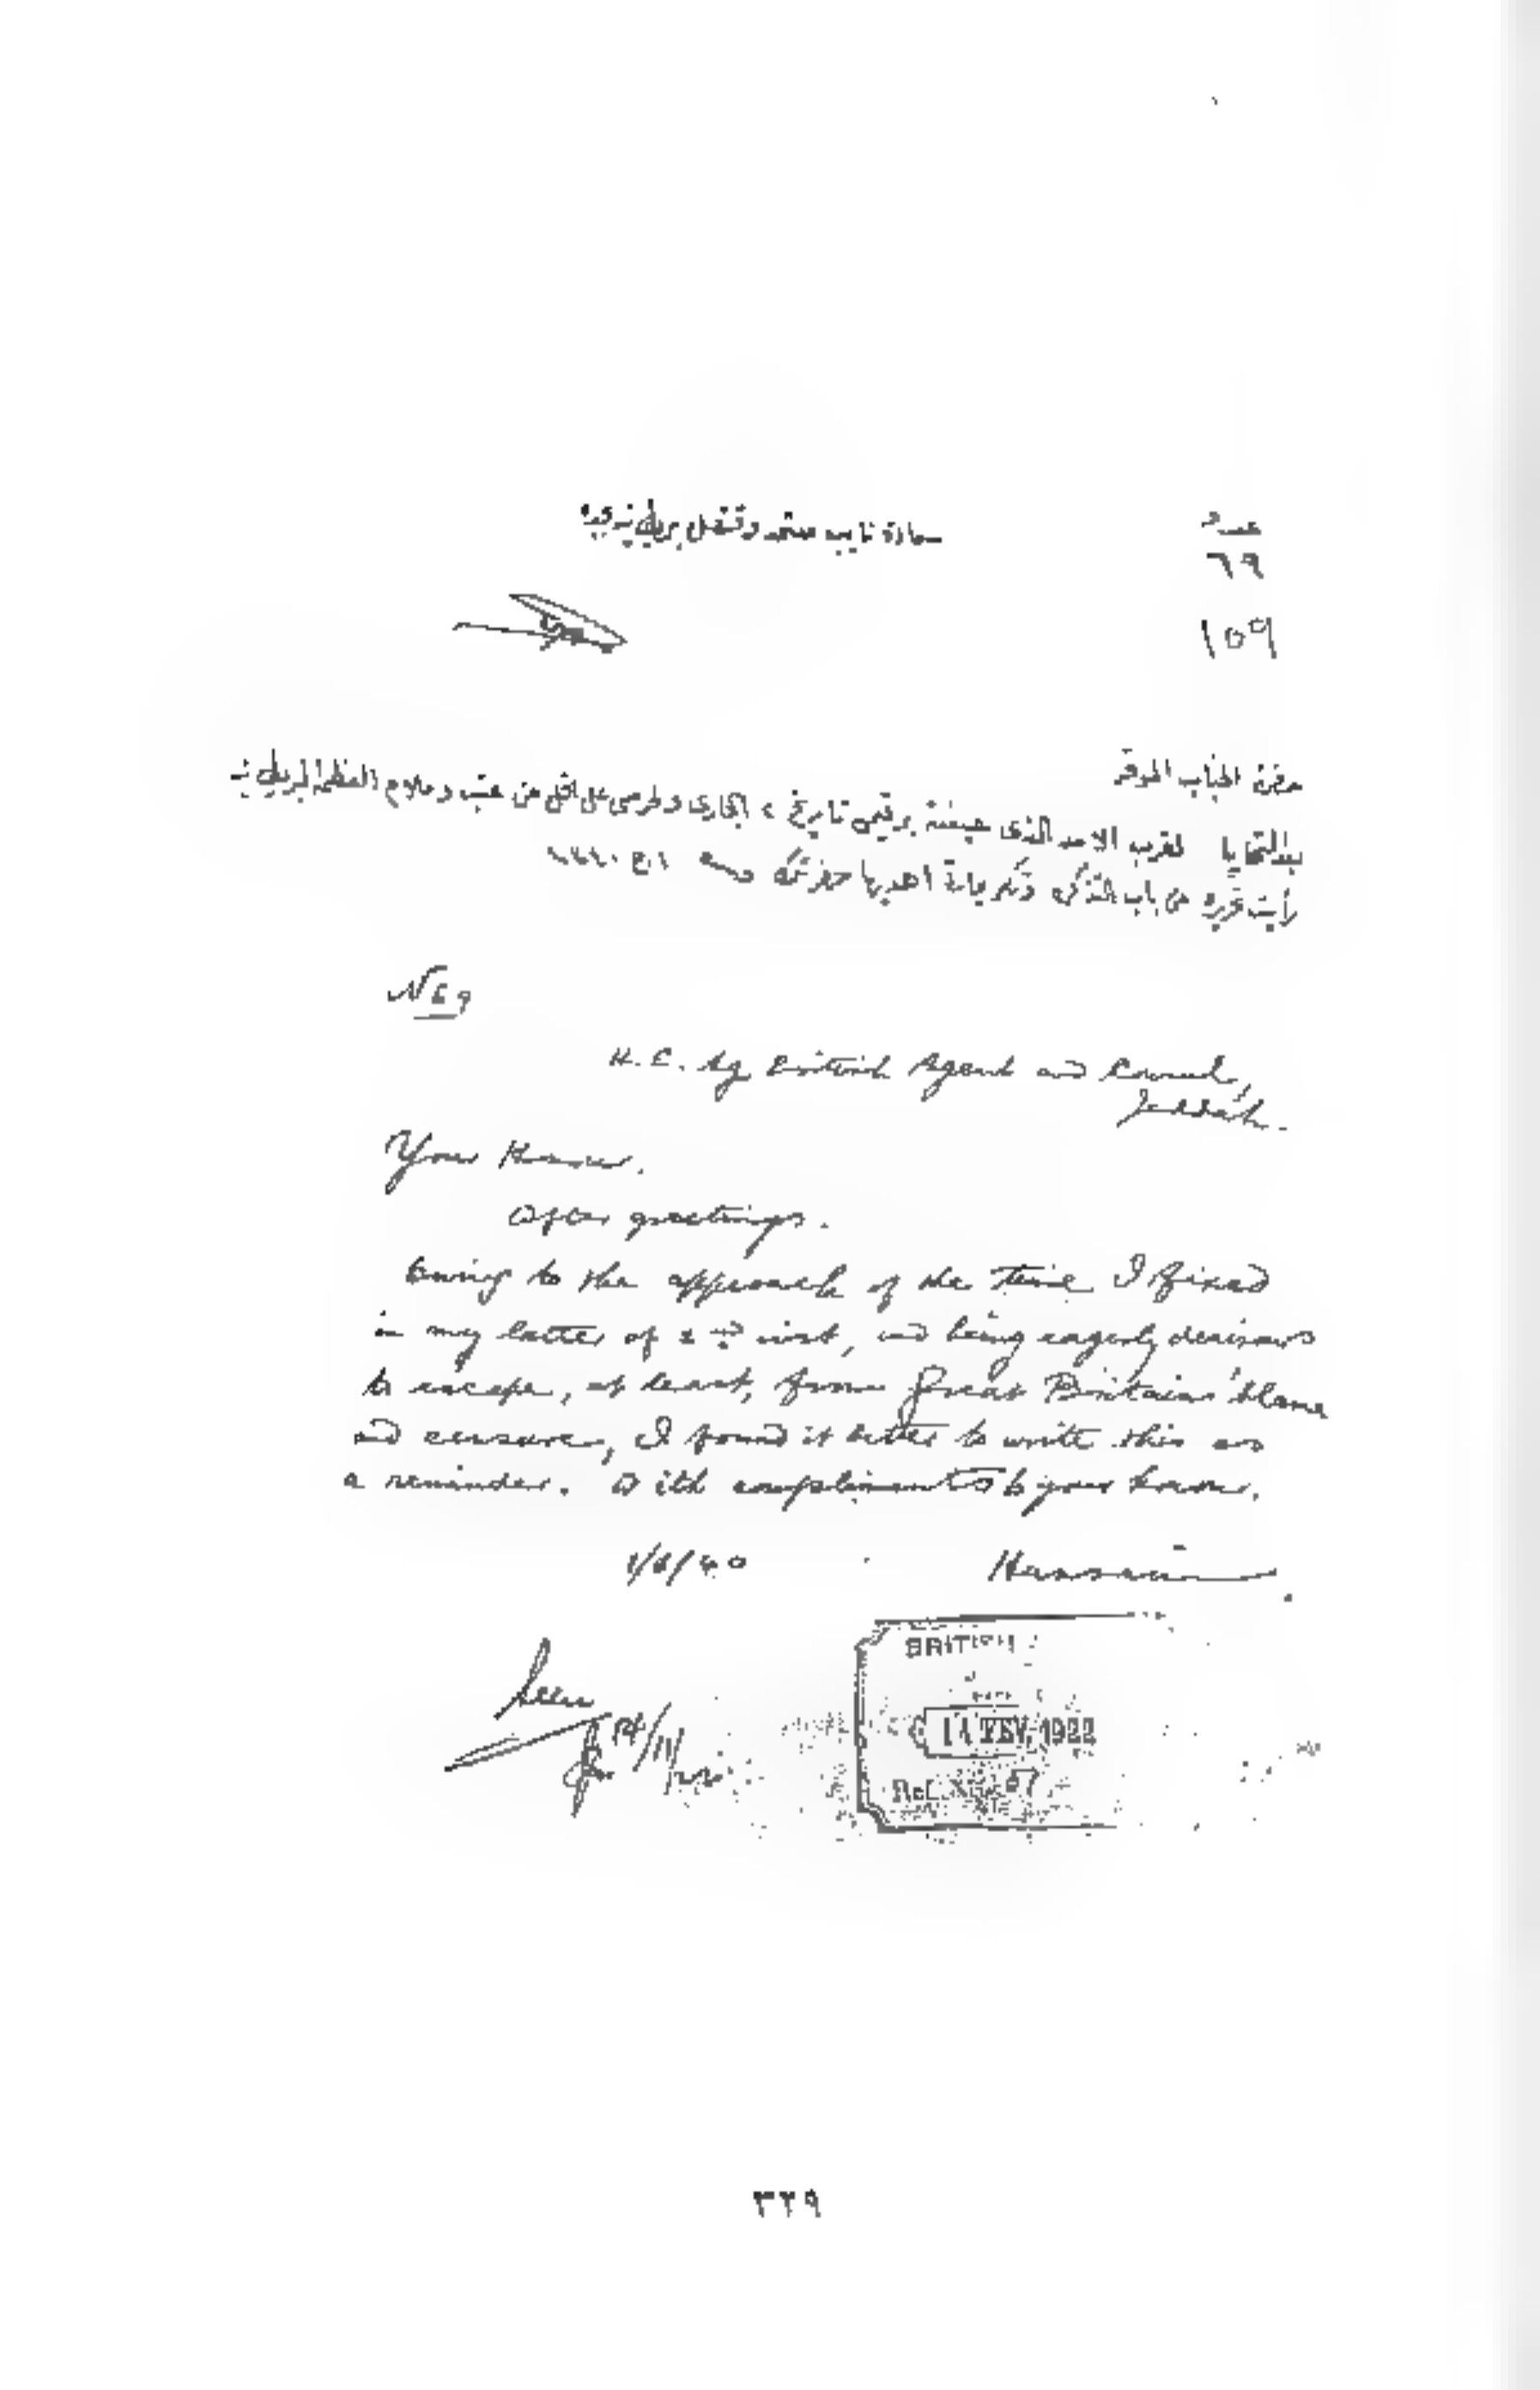 عدد
سعادة نايب معتمد وقنصل بريطانيه
٦٩
١٥٩
حضرة الجناب الموقر
بعد التحايا لقرب الامد الذى رقيمى تاريخ ٢ الجارى ولحرصى على اقل من عتب وملام العظمة البريطانيه
رأيت من باب
N 69
H.E. Ag British Agent and Consul,
Jeddah.
Your Honour.
After greetings.
Owing to the approach of the time I fixed
in my letter of 2nd inst, and being eagerly desirous
to escape, at least, from Great Britain's blame
and censure, I found it better to write this as
a reminder. With compliments to your honour.
1/6/40
Hussein
Seen
BRITISH
DATE
1922
Ref. No.
٣٢٩